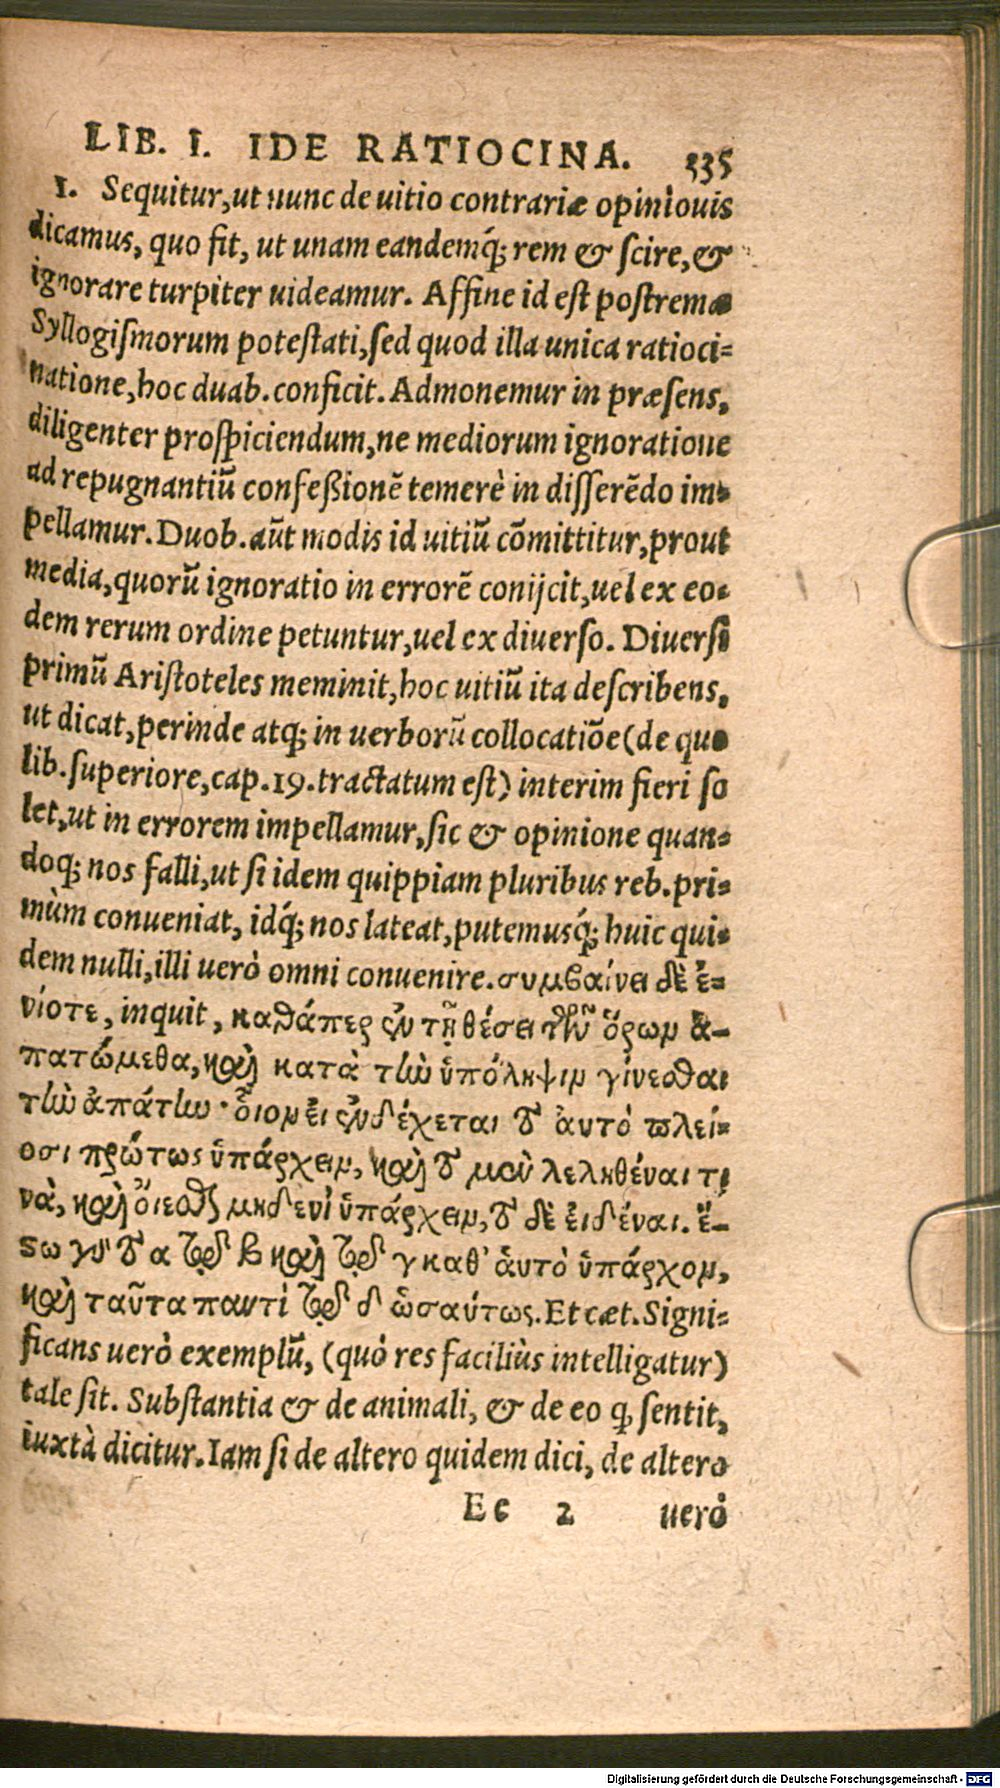 LIB. I. IDE RATIOCINA. 535
1. Sequitur, ut nunc de uitio contrariæ opiniouis
dicamus, quo fit, ut unam eandemq́; rem & scire, &
ignorare turpiter uideamur. Affine id est postremæ
Syllogismorum potestati, sed quod illa unica ratioci=
natione, hoc duab. conficit. Admonemur in præsens,
diligenter prospiciendum, ne mediorum ignoratione
ad repugnantiũ confeßionẽ temerè in disserẽdo im=
pellamur. Duob. aũt modis id uitiũ cõmittitur, prout
media, quorũ ignoratio in errorẽ conijcit, uel ex eo=
dem rerum ordine petuntur, uel ex diuerso. Diuersi
primũ Aristoteles meminit, hoc uitiũ ita describens,
ut dicat, perinde atq; in uerborũ collocatiõe (de quo
lib. superiore, cap. 19. tractatum est) interim fieri so
let, ut in errorem impellamur, sic & opinione quan=
doq; nos falli, ut si idem quippiam pluribus reb. pri=
mùm conueniat, idq́; nos lateat, putemusq́; huic qui=
dem nulli, illi uerò omni conuenire. συμβαίνει δὲ ἐ=
νίοτε, inquit, καθάπερ ἐν τῇ θέσει τῶν ὅρων ἀ=
πατώμεθα, καὶ κατὰ τὴν ὑπόληψιν γίνεσθαι
τὴν ἀπάτην· οἷον εἰ ἐνδέχεται τὸ ἀυτό πλεί=
οσι πρώτως ὑπάρχειν, καὶ τὸ μὲν λεληθέναι τι
νὰ, καὶ ὄιεσθαι μηδενὶ ὑπάρχειν, τὸ δὲ εἰδέναι. ἔ=
ϛω γὰρ τὸ α τῷ β καὶ τῷ γ καθ' ἁυτὸ ὑπάρχον,
καὶ ταῦτα παντὶ τῷ δ ὡσαύτως. Et cæt. Signi=
ficans uerò exemplũ, (quò res faciliùs intelligatur)
tale sit. Substantia & de animali, & de eo q̃ sentit,
iuxtà dicitur. Iam si de altero quidem dici, de altero
Ee 2 uerò
Digitalisierung gefördert durch die Deutsche Forschungsgemeinschaft - DFG